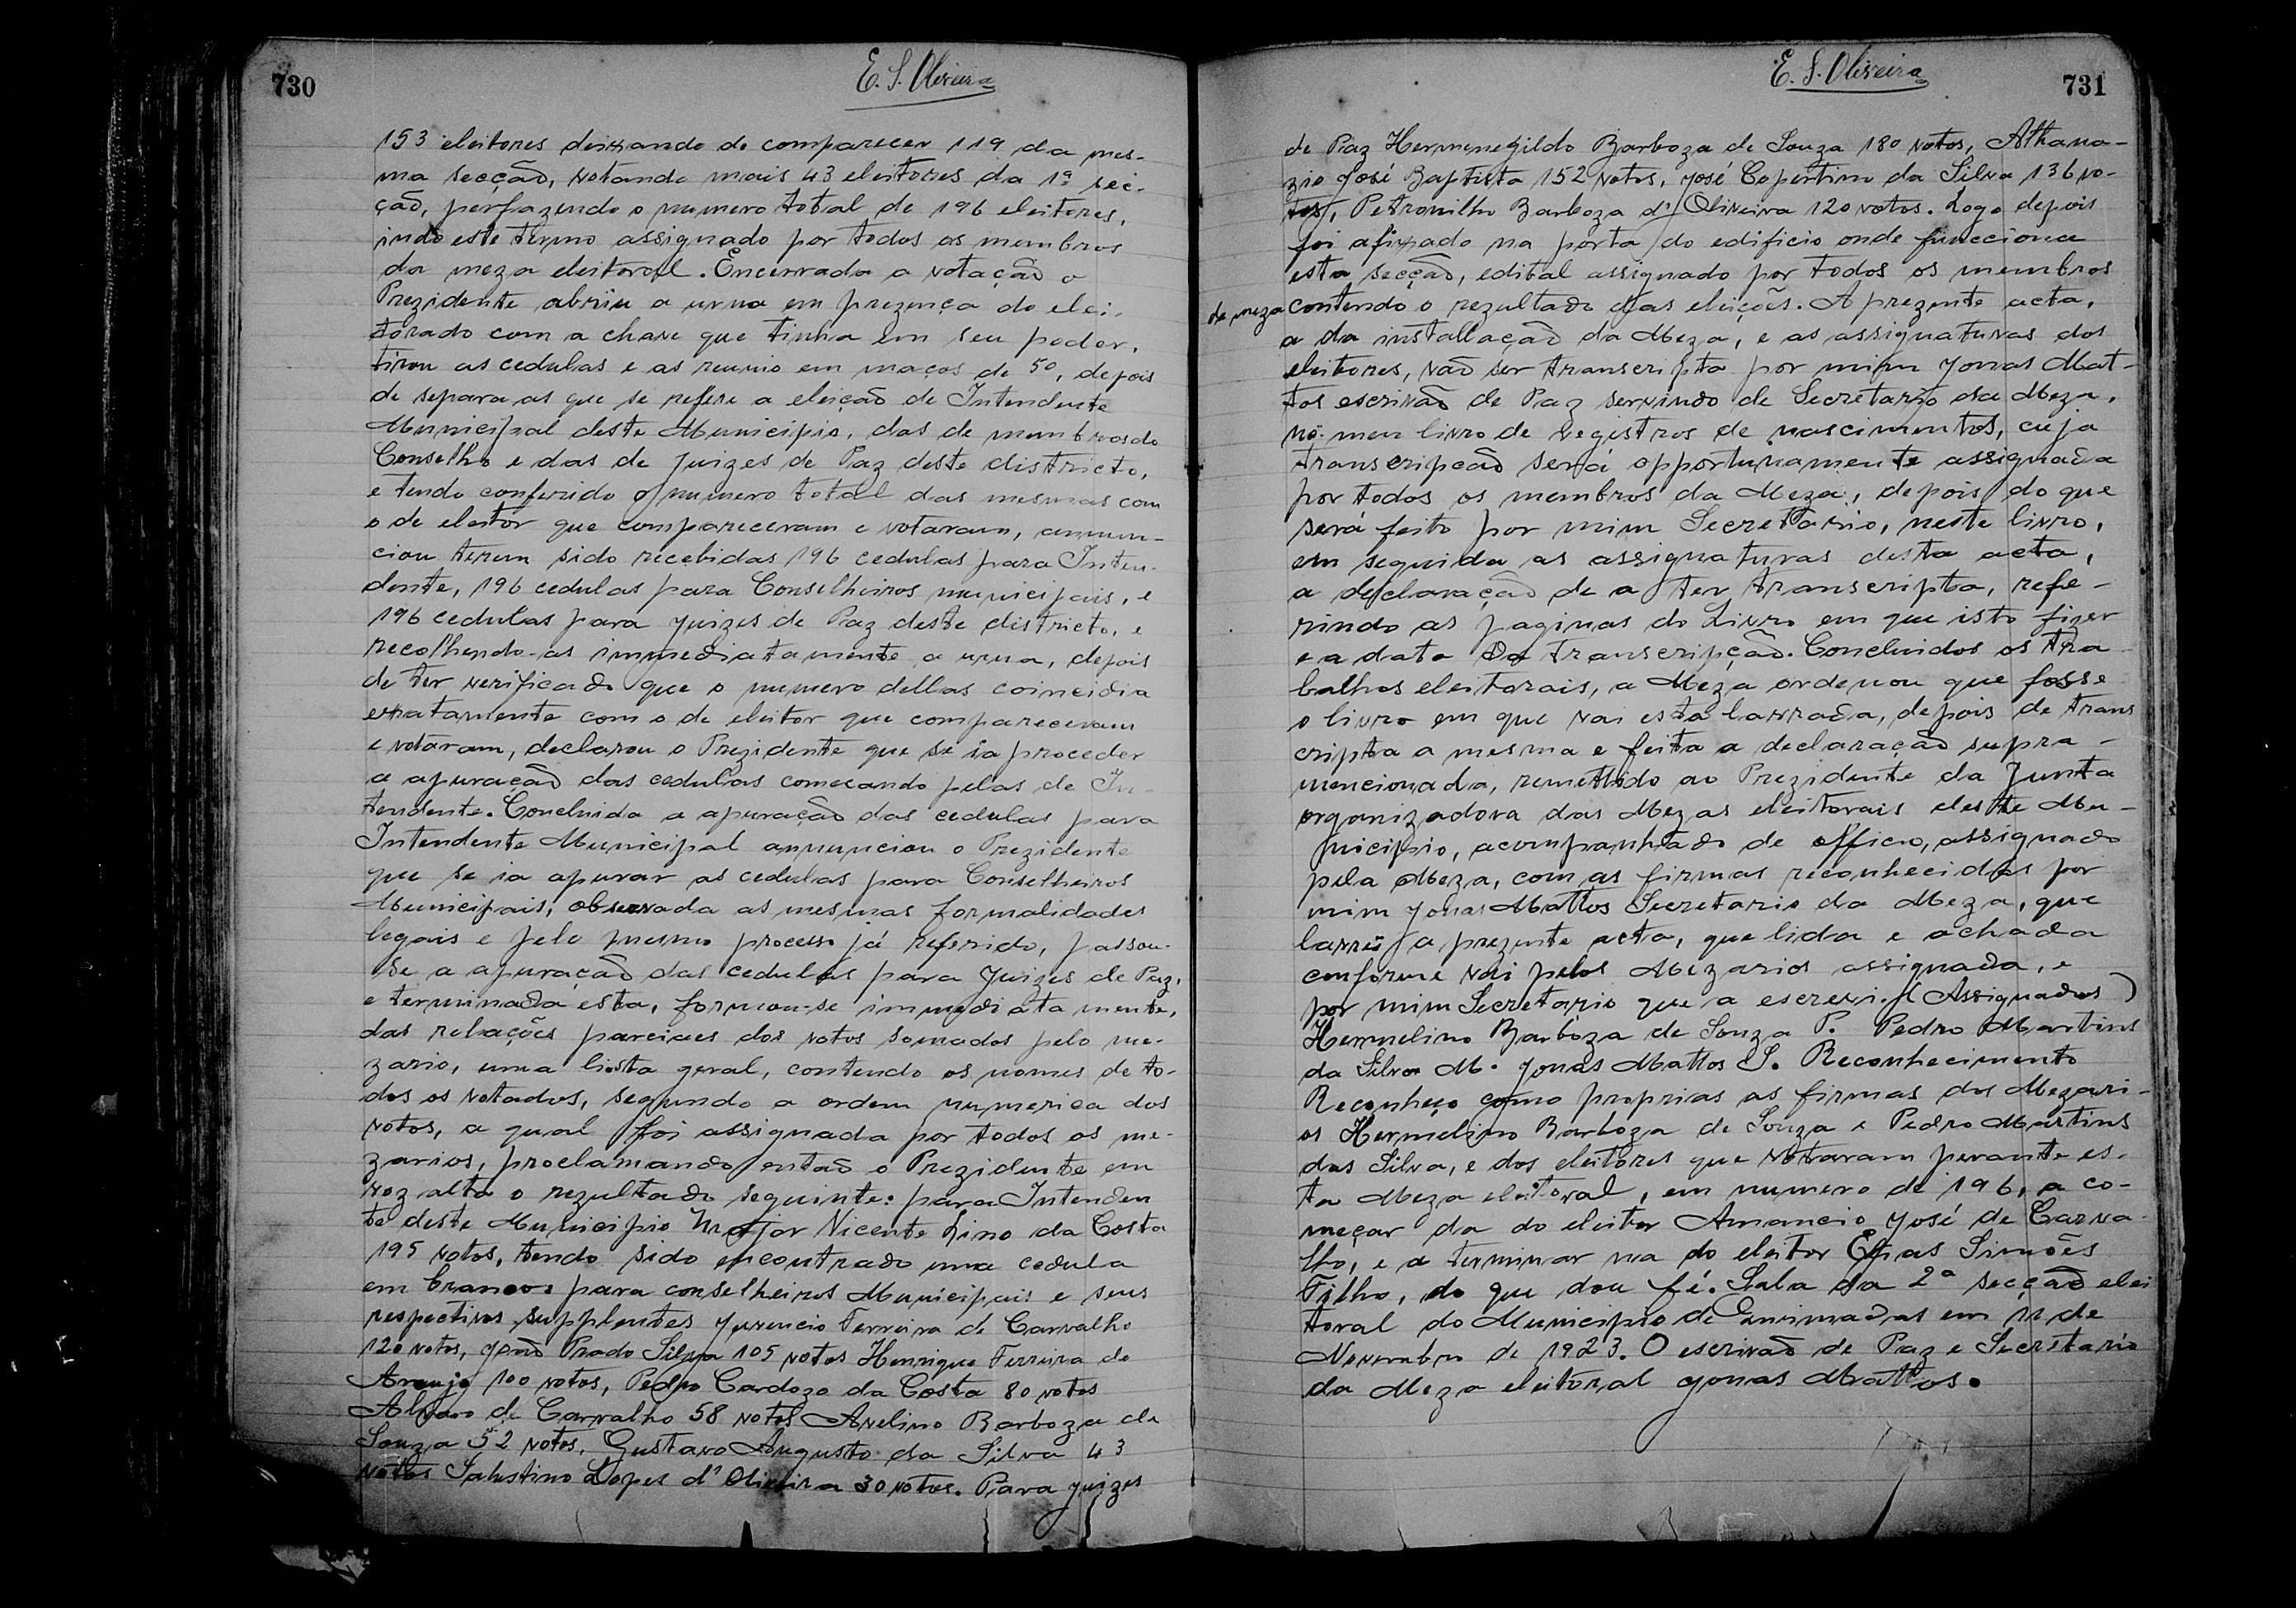 730
E. S. Oliveira
153 eleitores deixando de comparecer 119 da mes-
ma secção, votando mais 43 eleitores da 1ª sec-
ção, perfazendo o numero total de 196 eleitores,
indo este termo assignado por todos os membros
da meza eleitoral. Encerrada a votação o
Prezidente abriu a urna em prezença do elei-
torado com a chave que tinha em seu poder,
tirou as cedulas e as reunio em maços de 50, depois
de separa as que se refere a eleição de Intendente
Municipal deste Municipio, das de membros do
Conselho e das de Juizes de Paz deste districto,
e tendo conferido o numero total das mesmas com
o de eleitor que compareceram e votaram, annun-
ciou terem sido recebidas 196 cedulas para Inten-
dente, 196 cedulas para Conselheiros municipais, e
196 cedulas para juizes de Paz deste districto, e
recolhendo-as immediatamente a urna, depois
de ter verificado que o numero dellas coincidia
exatamente com o de eleitor que compareceram
e votaram, declarou o Prezidente que se ia proceder
a apuração das cedulas comecando pelas de In-
tendente. Concluida a apuração das cedulas para
Intendente Municipal annunciou o Prezidente
que se ia apurar as cedulas para Conselheiros
Municipais, observada as mesmas formalidades
legais e pelo mesmo processo já referido, passou-
se a apuração das cedulas para Juizes de Paz,
e terminada esta, formou-se immediatamente,
das relações parciaes dos votos somados pelo me-
zario, uma lista geral, contendo os nomes de to-
dos os votados, segundo a ordem numerica dos
votos, a qual foi assignada por todos os me-
zarios, proclamando então o Prezidente em
voz alta o rezultado seguinte: para Intenden
te deste Municipio Major Vicente Lino da Costa
195 votos, tendo sido encontrado uma cedula
em branco: para conselheiros Municipais e seus
respectivos supplentes Juvencio Ferreira de Carvalho
120 votos, João Prado Silva 105 votos Henrique Ferreira de
Araujo 100 votos, Pedro Cardozo da Costa 80 votos
Alvaro de Carvalho 58 votos Avelino Barboza de
Souza 52 votos, Gustavo Augusto da Silva 43
votos Salustino Lopes d'Oliveira 30 votos. Para juizes
E. S. Oliveira
731
de Paz Hermenegildo Barboza de Souza 180 votos, Athana-
zio José Baptista 152 votos, José Copertino da Silva 136 vo-
tos, Petronilho Barboza d'Oliveira 120 votos. Logo depois
foi afixado na porta do edificio onde funcciona
esta secção, edital assignado por todos os membros
da meza contendo o rezultado das eleições. A prezente acta,
a da installação da Meza, e as assignaturas dos
eleitores, vão ser transcripta por mim Jonas Mat-
tos escrivão de Paz servindo de Secretario da Meza,
no meu livro de registros de nascimentos, cuja
transcripcão será opportunamente assignada
por todos os membros da Meza, depois do que
será feito por mim Secretario, neste livro,
em seguida as assignaturas desta acta,
a declaração de a ter transcripta, refe-
rindo as paginas do Livro em que isto fizer
e a data da transcripção. Concluidos os tra-
balhos eleitorais, a Meza ordenou que fosse
o livro em que vai esta lavrada, depois de trans
cripta a mesma e feita a declaração supra-
mencionada, remettido ao Prezidente da Junta
organizadora das Mezas eleitorais deste Mu-
nicipio, acompanhado de officio, assignado
pela Meza, com as firmas reconhecidas por
mim Jonas Mattos Secretario da Meza, que
lavrei a prezente acta, que lida e achada
conforme vai pelos Mezarios assignada, e
por mim Secretario que a escrevi. (Assignados)
Hermelino Barboza de Souza P. Pedro Martins
da Silva M. Jonas Mattos S. Reconhecimento
Reconheço como proprias as firmas dos Mezari-
os Hermelino Barboza de Souza e Pedro Martins
das Silva, e dos eleitores que votaram perante es-
ta Meza eleitoral, em numero de 196, a co-
meçar da do eleitor Amancio José de Carva-
lho, e a terminar na do eleitor Elias Simões
Filho, do que dou fé. Sala da 2ª secção elei
toral do Municipio de Queimadas em 11 de
Novembro de 1923. O escrivão de Paz e Secretario
da Meza eleitoral Jonas Mattos.